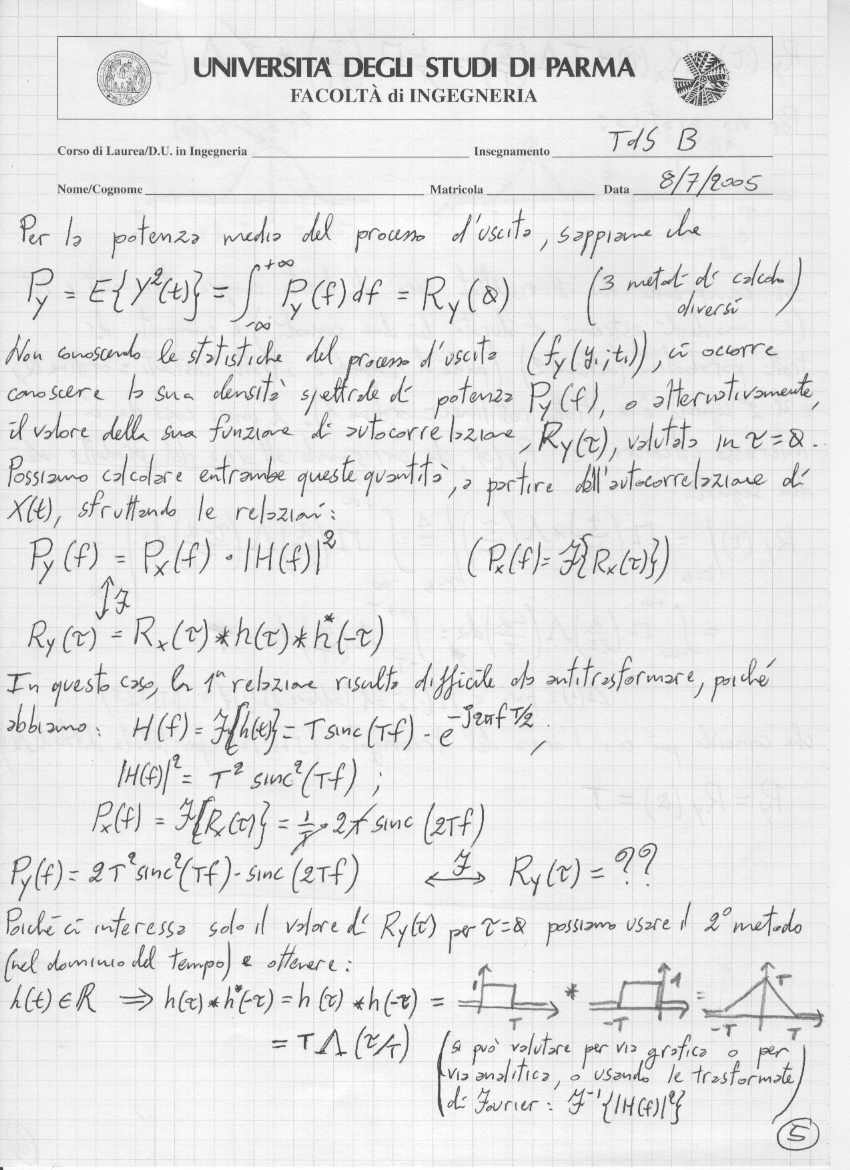 UNIVERSITA' DEGLI STUDI DI PARMA
FACOLTÀ di INGEGNERIA
Corso di Laurea/D.U. in Ingegneria Insegnamento TdS B
Nome/Cognome Matricola Data 8/7/2005
Per la potenza media del processo d'uscita, sappiamo che
P_y = E{Y²(t)} = ∫_{-∞}^{+∞} P_y(f) df = R_y(0) (3 metodi di calcolo
diversi)
Non conoscendo le statistiche del processo d'uscita (f_y(y₁;t₁)), ci occorre
conoscere la sua densità spettrale di potenza P_y(f), o alternativamente,
il valore della sua funzione di autocorrelazione, R_y(τ), valutata in τ=0.
Possiamo calcolare entrambe queste quantità, a partire dall'autocorrelazione di
X(t), sfruttando le relazioni:
P_y(f) = P_x(f) · |H(f)|² (P_x(f) = ℱ{R_x(τ)})
↕ℱ
R_y(τ) = R_x(τ) * h(τ) * h*(-τ)
In questo caso, la 1ª relazione risulta difficile da antitrasformare, poiché
abbiamo: H(f) = ℱ{h(t)} = T sinc(Tf) · e^{-j2πf T/2};
|H(f)|² = T² sinc²(Tf) ;
P_x(f) = ℱ{R_x(τ)} = 1/T · 2T sinc(2Tf)
P_y(f) = 2T² sinc²(Tf) · sinc(2Tf) ⟷ℱ R_y(τ) = ??
Poiché ci interessa solo il valore di R_y(τ) per τ=0 possiamo usare il 2° metodo
(nel dominio del tempo) e ottenere:
h(t) ∈ R ⟹ h(τ) * h*(-τ) = h(τ) * h(-τ) = 1 T * -T 1 = T -T T
= T Λ(τ/T) (si può valutare per via grafica o per
via analitica, o usando le trasformate
di Fourier: ℱ⁻¹{|H(f)|²})
5